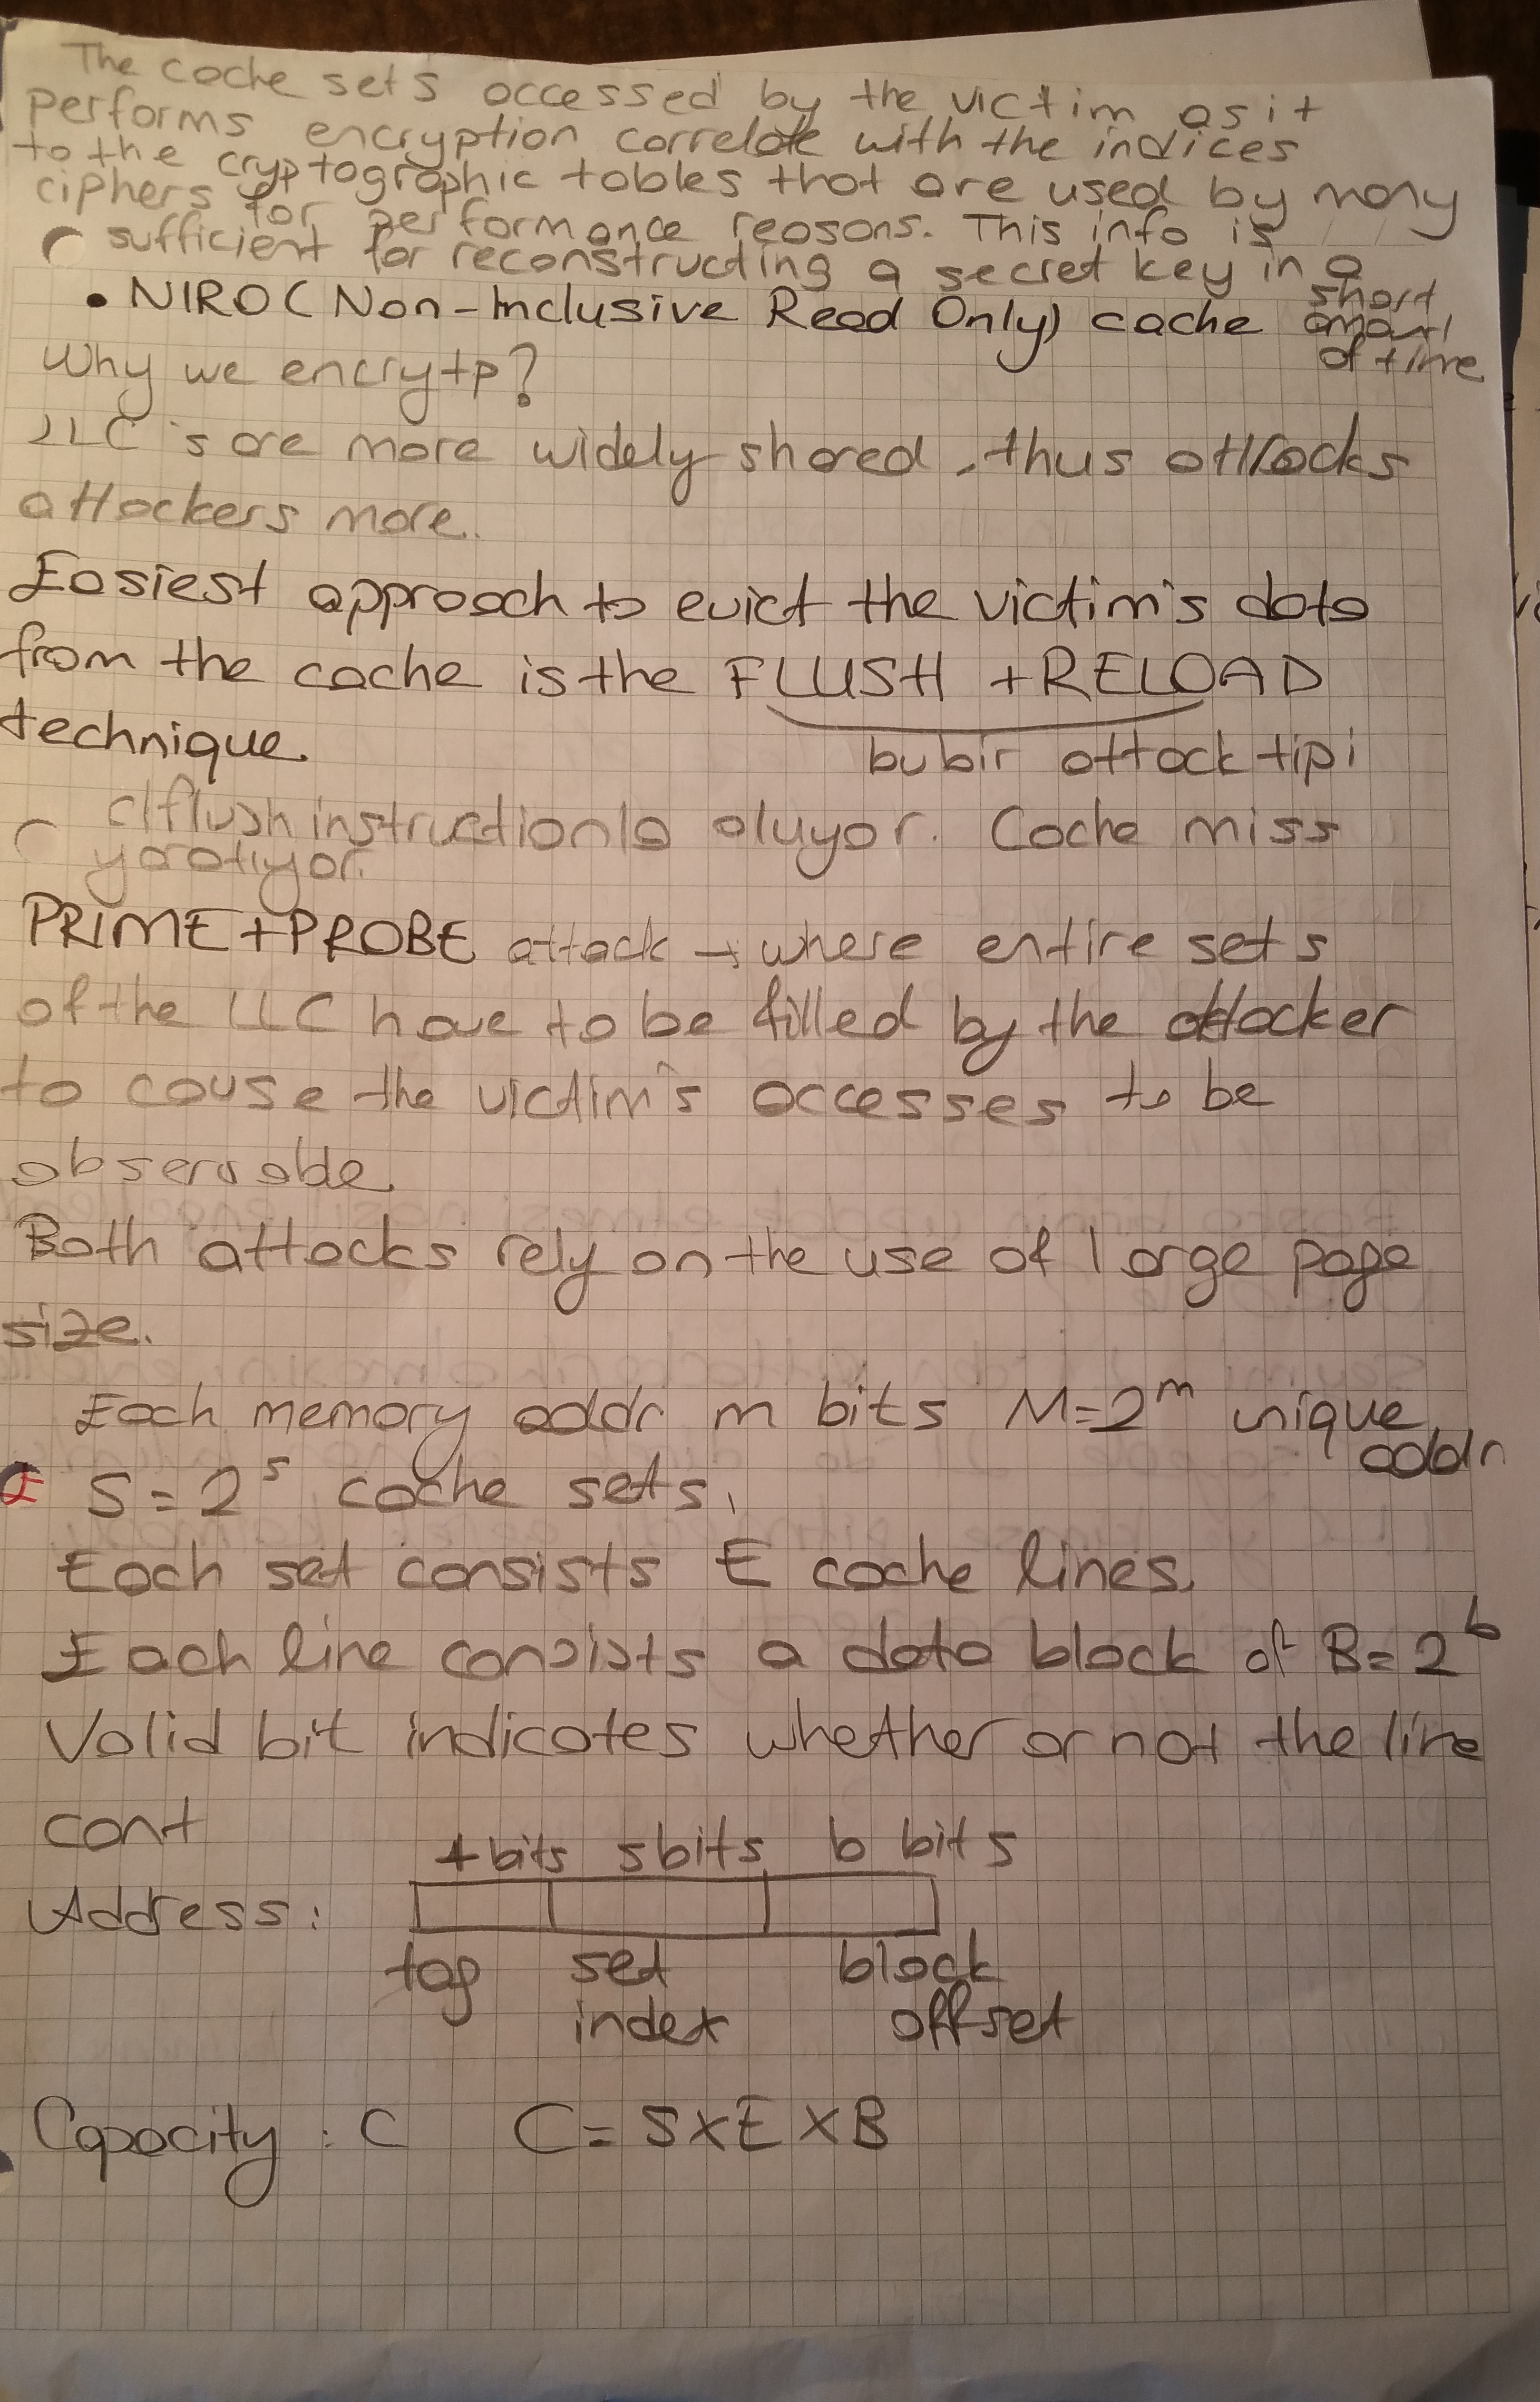 The cache sets accessed by the victim as it
performs encryption correlate with the indices
to the cryptographic tables that are used by many
ciphers for performance reasons. This info is
sufficient for reconstructing a secret key in a
short
amount
of time
• NIRO( Non-Inclusive Read Only) cache
Why we encrytp?
LLC's are more widely shared, thus attracks
attackers more.
Easiest approach to evict the victim's data
from the cache is the FLUSH +RELOAD
technique.
bu bir attack tipi
clflush instructionla oluyor. Cache miss
yaratiyor.
PRIME+PROBE attack → where entire sets
of the LLC have to be filled by the attacker
to cause the victim's accesses to be
observable.
Both attacks rely on the use of large page
size.
Each memory addr m bits M=2^m unique
addr
S = 2^s cache sets.
Each set consists E cache lines.
Each line consists a data block of B=2^b
Valid bit indicates whether or not the line
cont
t bits s bits b bits
Address:
tag set block
index offset
Capacity : C C= S×E×B